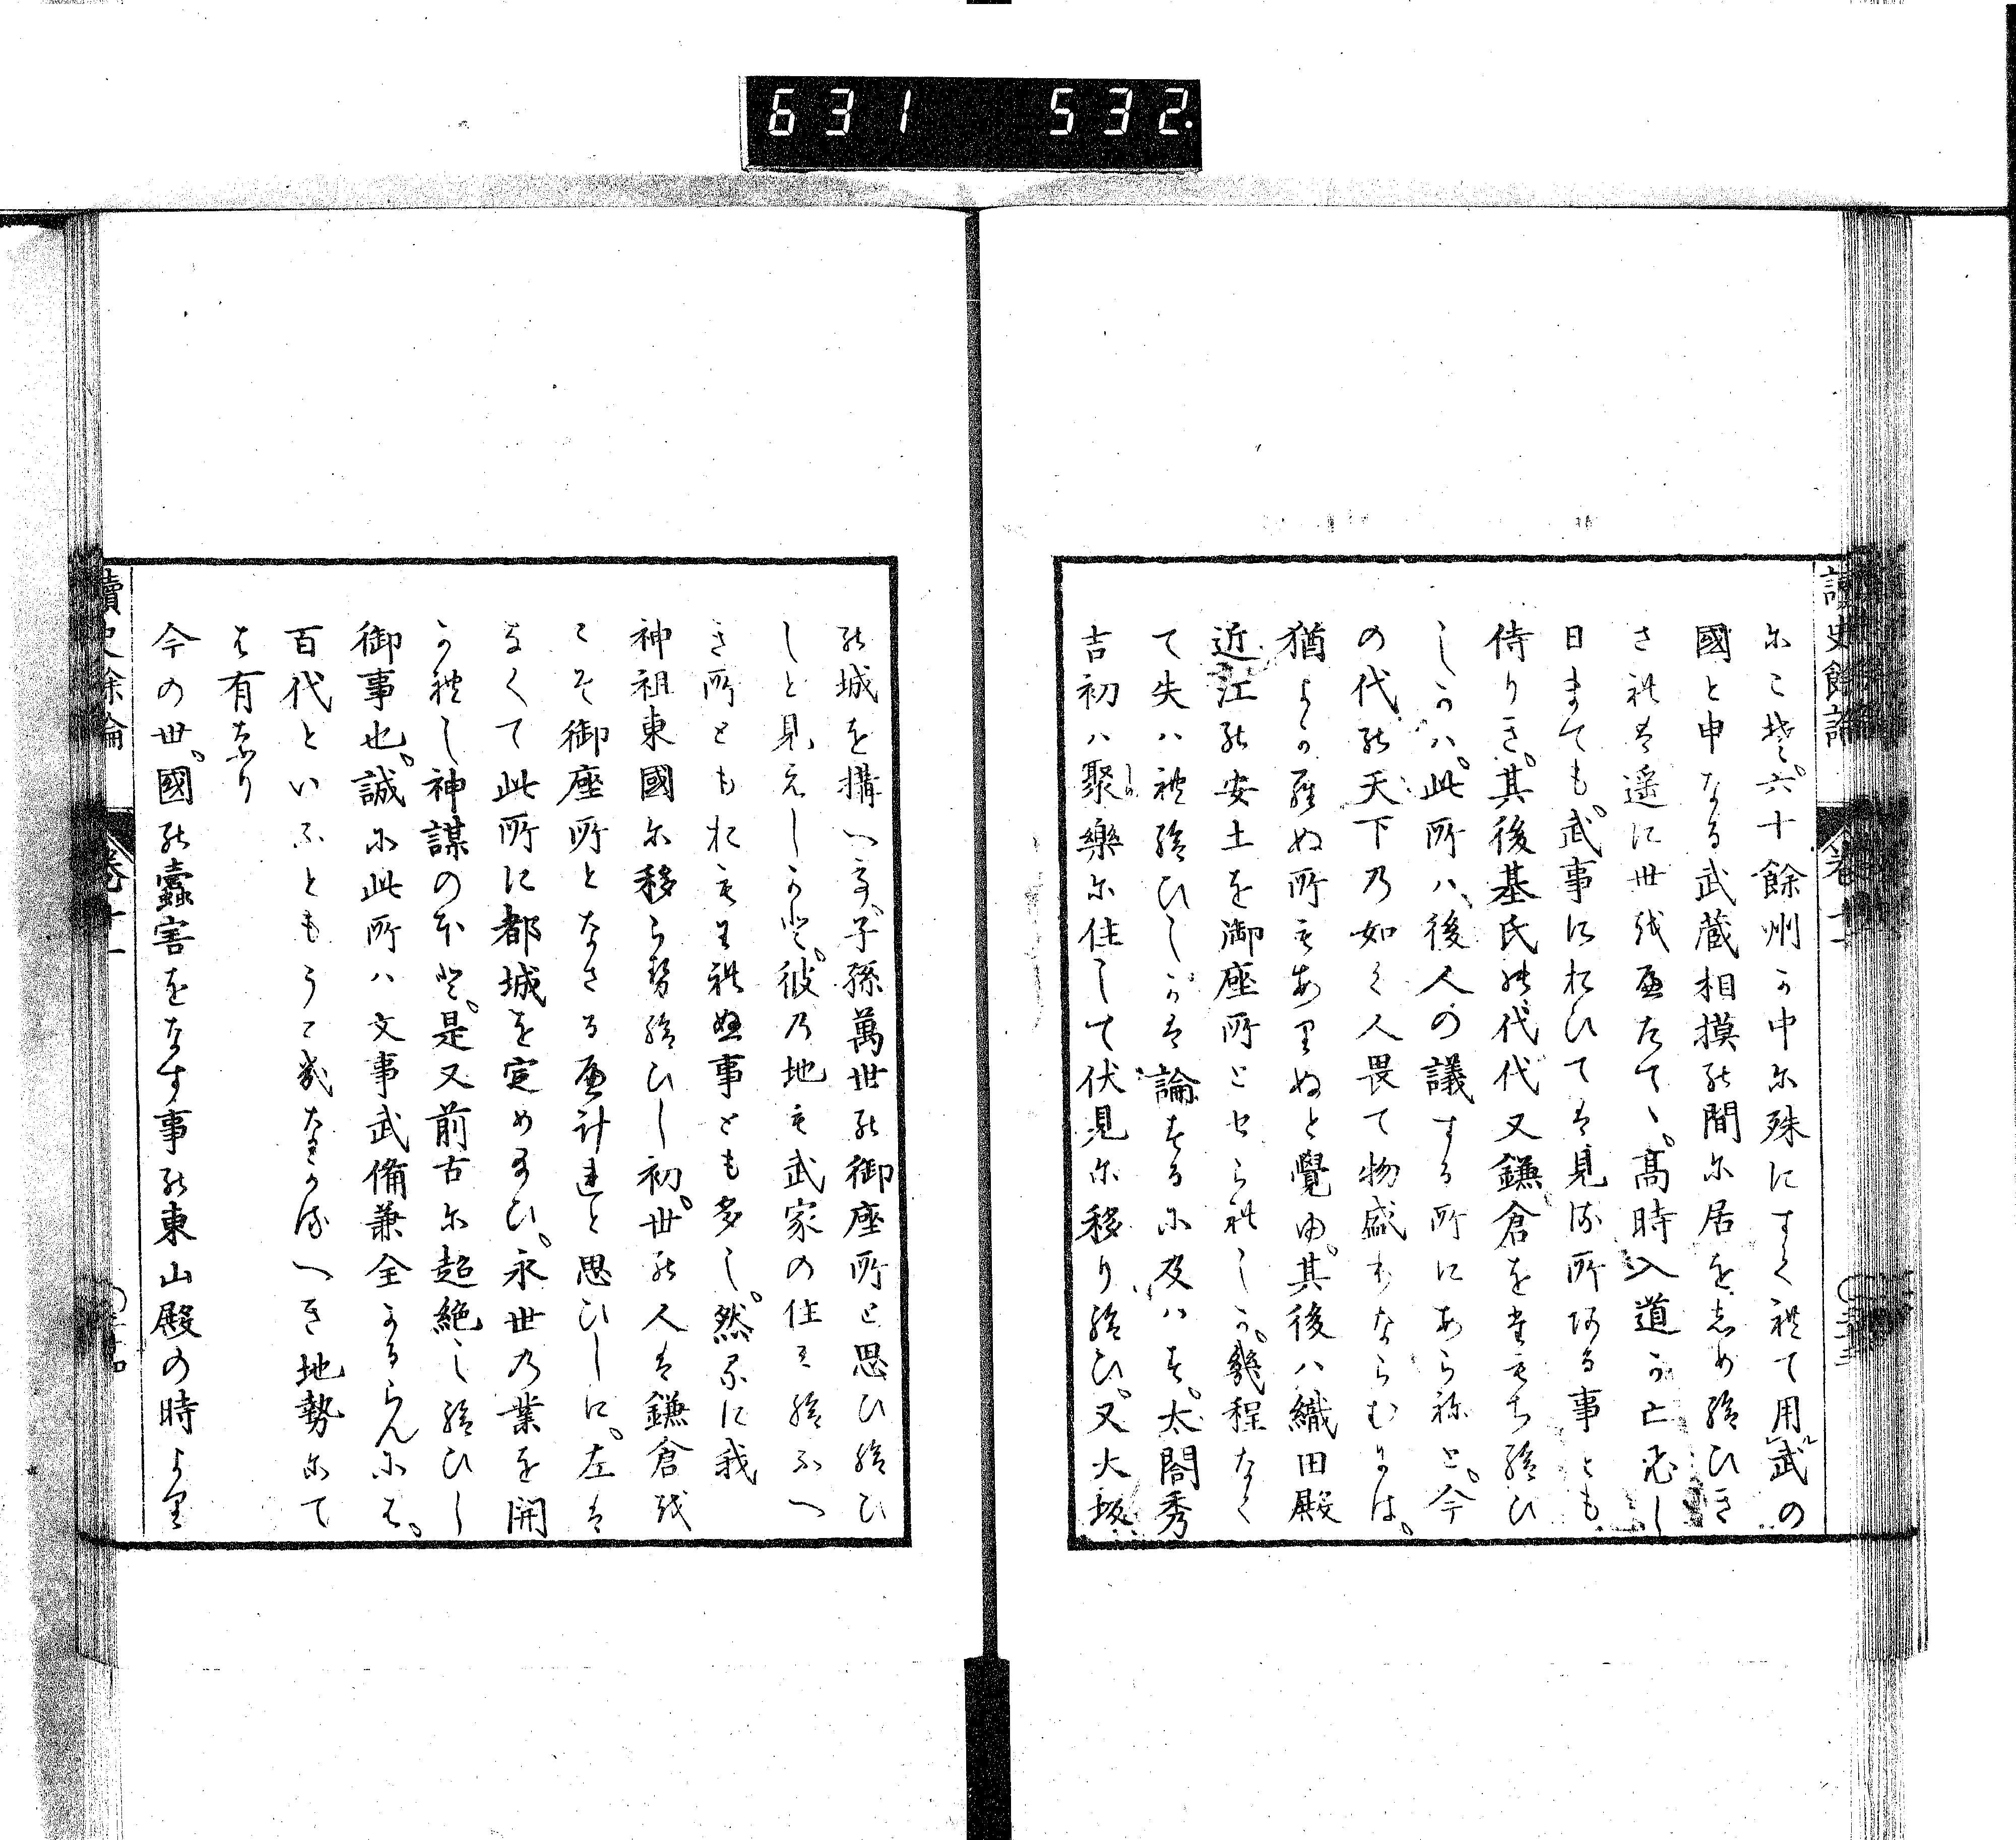 631 532
讀史餘論 卷十一
尓こそ。六十餘州の中尓殊にすくれて用武の
國と申なる武蔵相摸能間尓居をしめ給ひき
されは遥に世を歴たて、。髙時入道か亡ひし
日まても。武事におひては見る所ある事とも
侍りき。其後基氏能代代又鎌倉をたもち給ひ
しかハ。此所ハ、後人の議する所にあらねと。今
の代能天下乃如く人畏て物盛むならむには。
猶よからぬ所もありぬと覺ゆ。其後ハ織田殿
近江能安土を御座所とせられしか。幾程なく
て失ハれ給ひしかは論するに及ハす。太閤秀
吉初ハ聚樂尓住して伏見尓移り給ひ。又大坂
能城を搆へて。子孫萬世能御座所と思ひ給ひ
しと見えしかと。彼乃地も武家の住み給ふへ
き所ともおもはれぬ事とも多し。然るに我
神祖東國尓移らせ給ひし初。世能人は鎌倉を
こそ御座所となさるへけれと思ひしに。左は
なくて此所に都城を定め給ひ。永世乃業を開
かれし神謀のほと。是又前古尓超絶し給ひし
御事也。誠尓此所ハ文事武備兼全かるらん尓は。
百代といふともうこきなかるへき地勢尓て
は有なり
今の世。國能蠧害をなす事能東山殿の時より
讀史餘論 卷十一